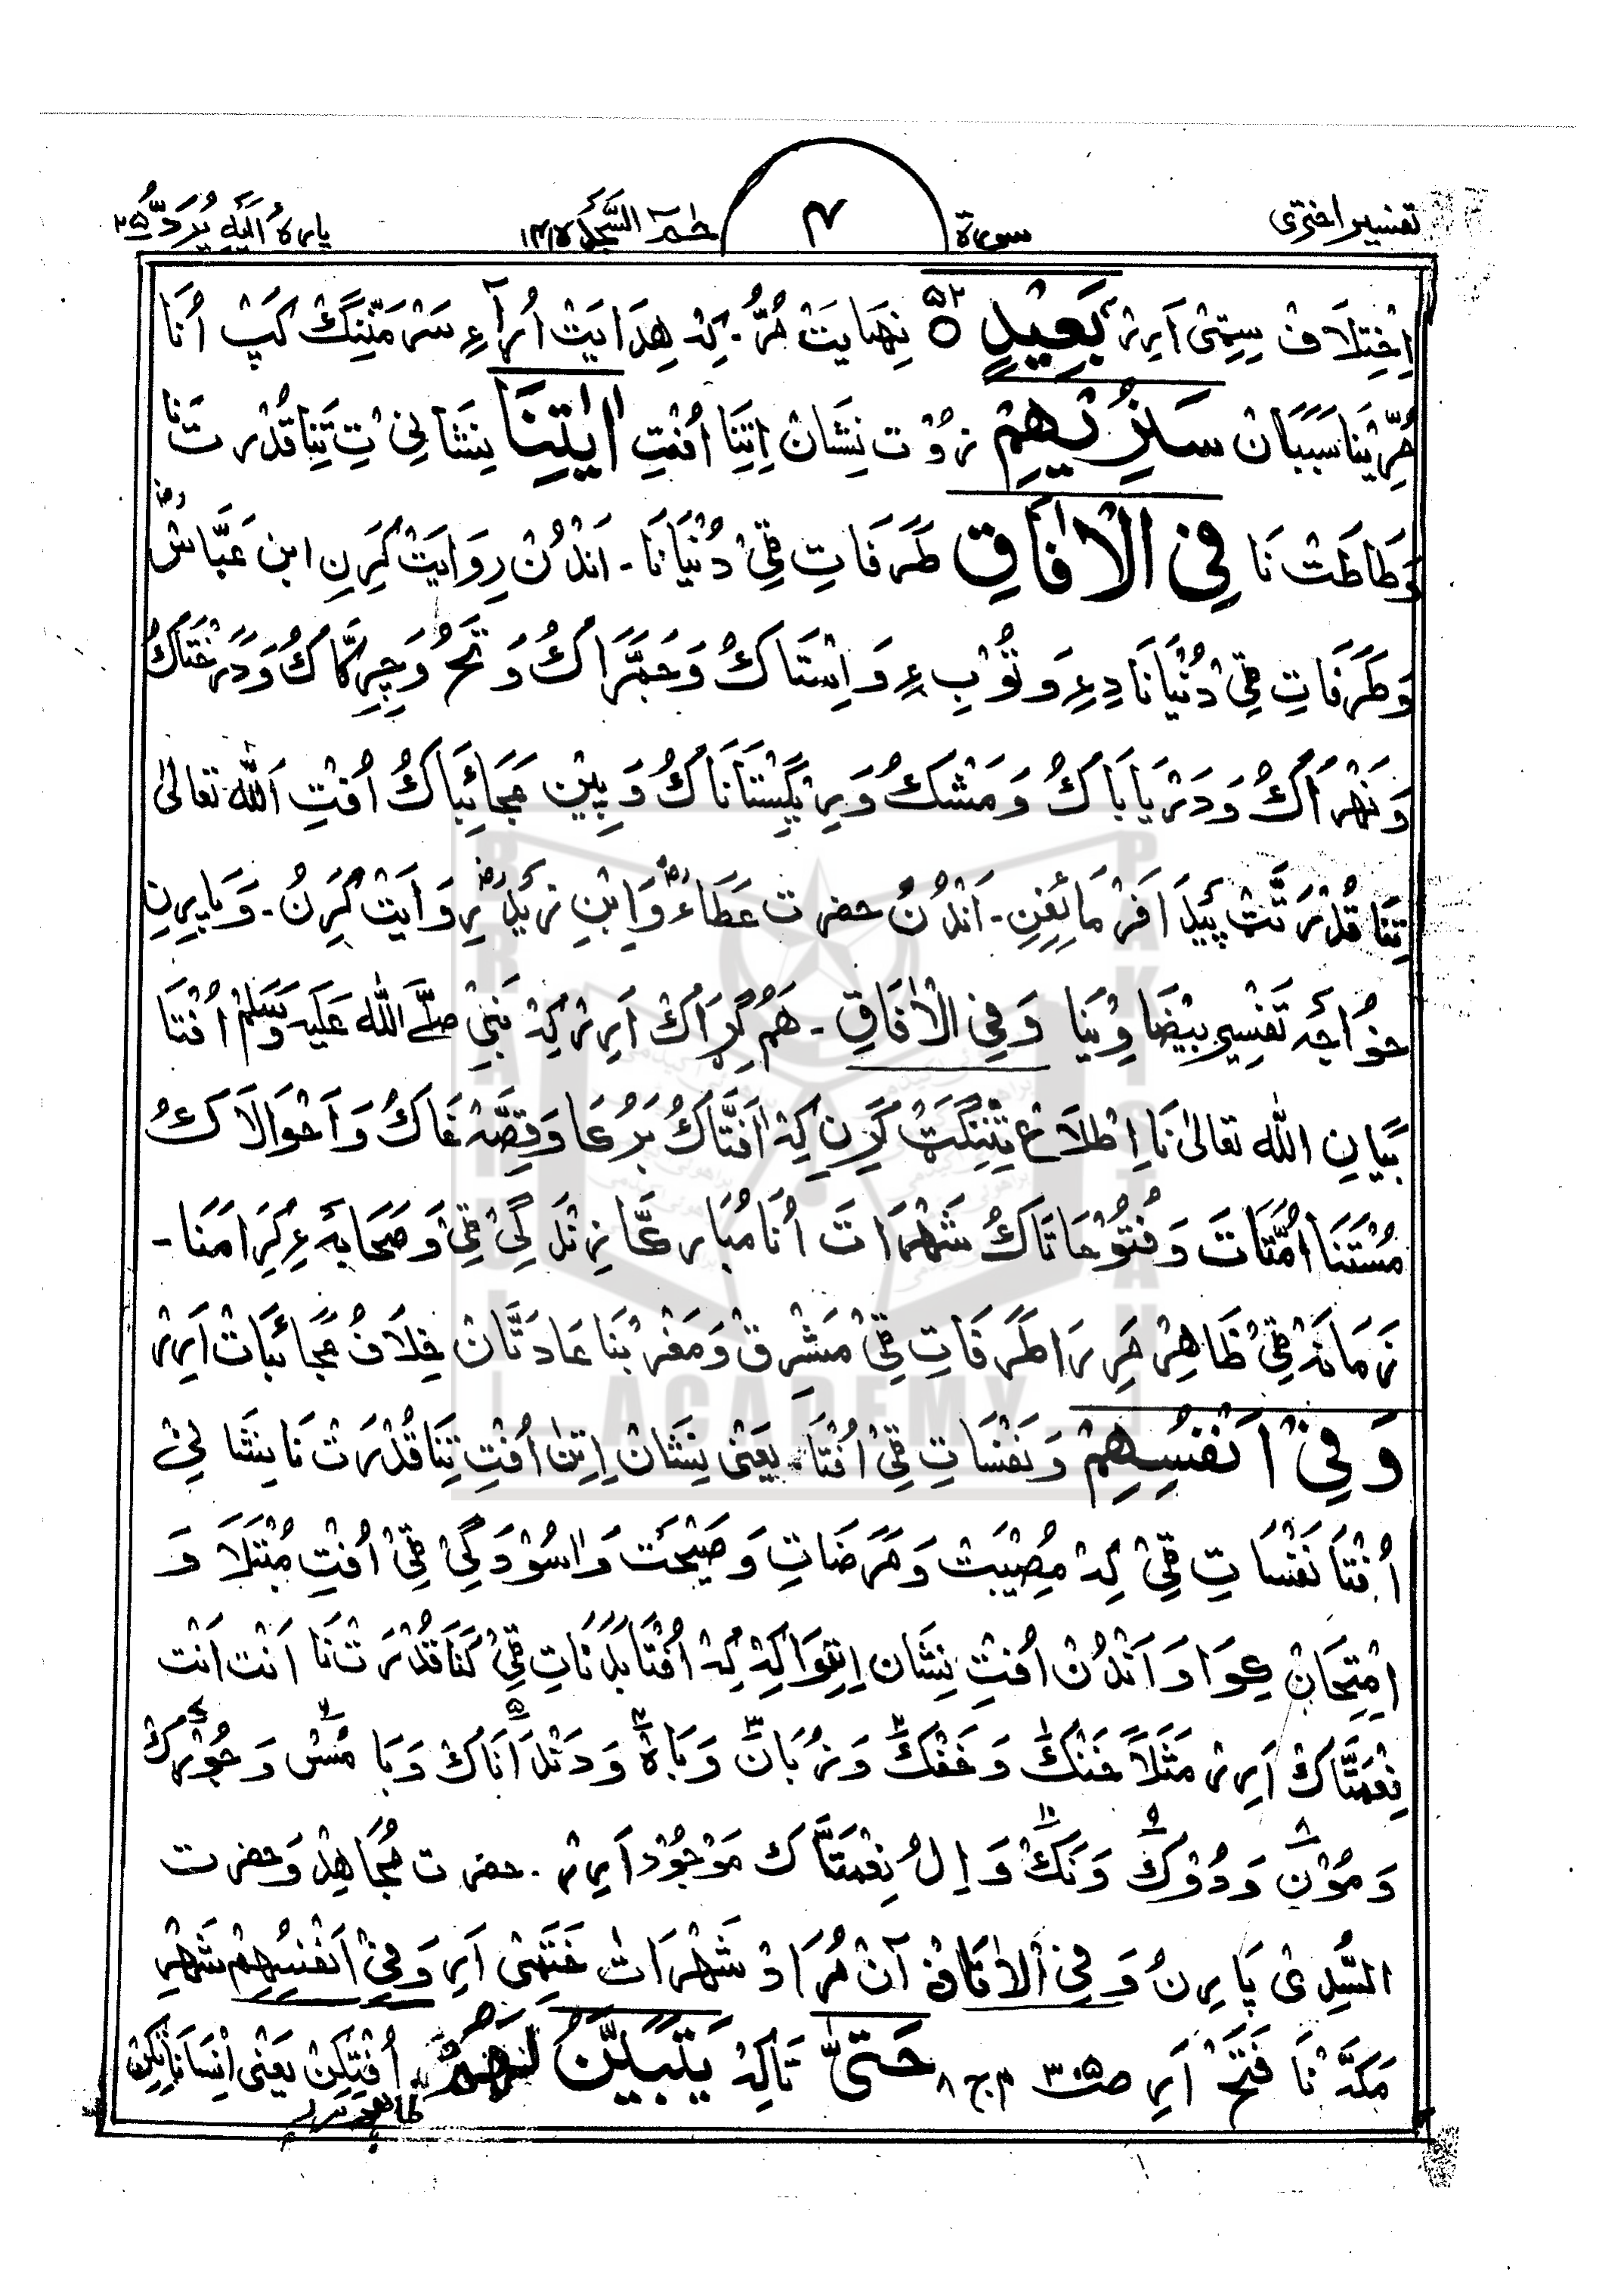 تفسیر اختری
سورة
۴
حٰمٓ السَّجدة ۴۱
پارہُ اِلَیْهِ یُرَدُّ ۲۵
اِخْتِلَافْ سِتِیْ اَرِیْر بَعِیْدٍ ۵۲ نِهَایَتْ مُرُّ. کِہ هِدَایَتْ اُرآءِ سَرْ مَتِّنِگْ کَپْ اُنَا
مُرِّیْنَا سَبَبَانْ سَنُرِیْهِمْ زُوْت نِشَانْ اِتِنَا اُفْتِ اٰیٰتِنَا نِشَانِیْ تِ تِنَا قُدْرَت نَا
وَطَاقَتْ نَا فِی الْاٰفَاقِ طَرَفَاتِ ٹِیْ دُنْیَانَا۔ اَنْدُنْ رِوَایَتْ کَرِنِ ابن عَبَّاسْؓ
وَطَرَفَاتِ ٹِیْ دُنْیَانَا دِءِ وَتُوْبِءِ وَاِسْتَاکُ وَجَمَّرَاکُ وَتَحُ وَچِرِکَّاکُ وَدَرَخْتَاکُ
وَنَهْرَاکُ وَدَرْیَابَاکُ وَمَشْکُ وَرِیْگِسْتَانَاکُ وَبِیْن عَجَائِبَاکُ اُفْتِ اَللّٰه تَعَالٰی
تِنَا قُدْرَتَّتْ پَیْدَا فَرْمَائِفِنِ۔ اَنْدُنْ حضرت عَطَاءؓ وَابْنِ زَیْدؓ رِوَایَتْ کَرِنُ۔ وَپَارِنِ
خُوَاجَه تَفْسِیر بَیْضَاوِیْنَا وَفِی الْاٰفَاقِ۔ هَمُ کِرَاکْ اَرِیْر کِہ نَبِیْ صَلَّے اللّٰه عَلَیْه وَسَلَّمْ اُفْتَا
بَیَانِ اللّٰه تعالٰی نَا اِطْلَاعْ تِنِنْگَتْ کَرِنِ کِہ اٰفَتَّاکُ بَرُعَا وَقِصَّه غَاکُ وَاَحْوَالَاکُ
مُسْتَنَا اُمَّتَاتَ وَفُتُوْحَاتَاکُ شَهْرَاتَ اُنَا مُبَارکَا زِنْدَگِیْ ٹِیْ وَصَحَابَهءِ کِرَامَنَا۔
زَمَانَه ٹِیْ ظَاهِرْ مَرِرَ اطَرَفَاتِ ٹِیْ مَشْرِقْ وَمَغْرِبْنَا عَادَتَّانْ خِلَافُ عَجَائِبَاتْ اَرِیْر
وَفِیْ اَنْفُسِهِمْ وَنَفْسَاتِ ٹِیْ اُفْتَا، یَعْنِی نِشَانْ اِتِنْ اُفْتِ تِنَا قُدْرَتْ نَا نِشَانِیْ
اُفْتَا نَفْسَاتِ ٹِیْ کِہ مُصِیْبَتْ وَمَرَضَاتِ وَصِیْحَتْ وَاٰسُوْدَگِیْ ٹِیْ اُفْتِ مُبْتَلَا وَ
اِمْتِحَانْ عِوَا وَاَنْدُنْ اُفْتِ نِشَان اِتِوَا کِہ کِہ اُفْتَا بَدَنَاتِ ٹِیْ کَنَا قُدْرَتْنَا اَنْتْ اَنْت
نِعْمَتَّاکْ اَرِیْر مَثَلًا خَنْکْ وَخَفْکْ وَزُبَانْ وَبَاهْ وَدَنْدَانَاکْ وَبَامُسْ وَجُوْرْکْ
وَمُوْنْ وَدُوْکْ وَنَکْ وَاِلُ نِعْمَتَّاک مَوْجُوْد اَرِیْر۔ حضرت مُجَاهِدْ وَحضرت
السُّدِیْ پَارِنُ وَفِی الْاٰفَاقْ اٰنْ مُرَادْ شَهْرَاتْ فَتَحِیْ اَرِ وَفِیْ اَنْفُسِهِمْ شَهْرِ
مَکَّهْ نَا فَتْحْ اَرِ صت ۳۰۵ ج ۸ حَتّٰی تَاکِہ یَتَبَیَّنَ لَهُمْ اُفْتِکِنْ یَعْنِی اِنْسَانَاتِکِنْ
ظاهر